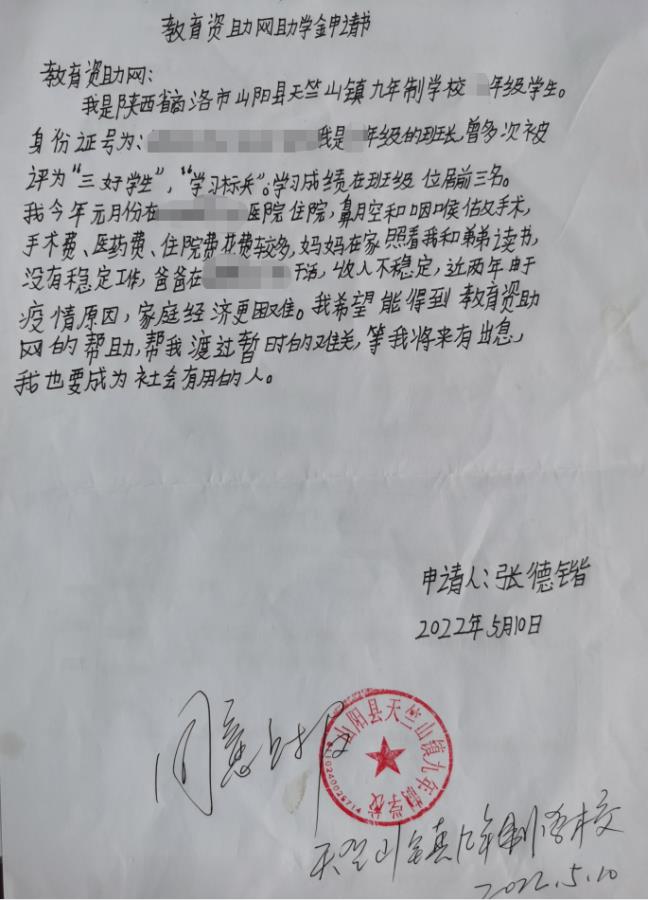 教育资助网助学金申请书
教育资助网：
我是陕西省商洛市山阳县天竺山镇九年制学校 年级学生。
身份证号为： 我是 年级的班长，曾多次被
评为“三好学生”，“学习标兵”；学习成绩在班级位居前三名。
我今年元月份在 医院住院，鼻腔和咽喉做手术，
手术费、医药费、住院费花费较多，妈妈在家照看我和弟弟读书，
没有稳定工作，爸爸在 干活，收入不稳定，近两年由于
疫情原因，家庭经济更困难。我希望能得到教育资助
网的帮助，帮我渡过暂时的难关，等我将来有出息，
我也要成为社会有用的人。
申请人：张德锴
2022年5月10日
同意上报
山阳县天竺山镇九年制学校
天竺山镇九年制学校
2022.5.10